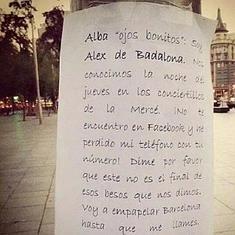 Alba "ojos bonitos": Soy
Alex de Badalona. Nos
conocimos la noche del
jueves en los conciertillos
de la Mercé. ¡No te
encuentro en Facebook y he
perdido mi teléfono con tu
número! Dime por favor
que este no es el final de
esos besos que nos dimos.
Voy a empapelar Barcelona
hasta que me llames.